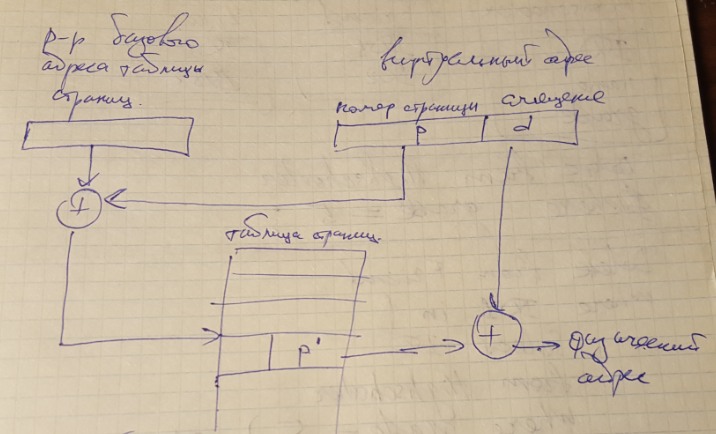 р-р базового
адреса таблицы
страниц.
виртуальный адрес
номер страницы смещение
p d
+
таблица страниц.
p'
+
физический
адрес